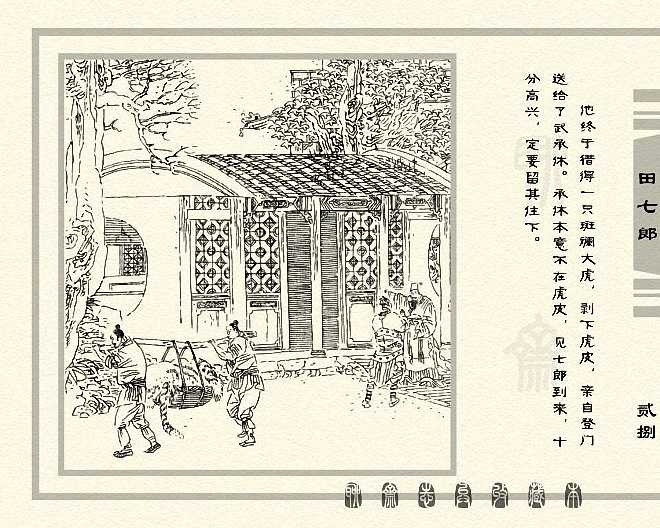 田七郎
贰捌
他终于猎得一只斑斓大虎，剥下虎皮，亲自登门
送给了武承休。承休本意不在虎皮，见七郎到来，十
分高兴，定要留其住下。